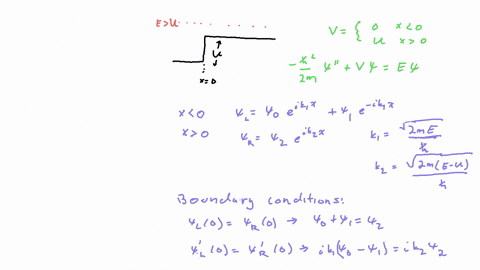 E>U
U
x=0
V = { 0 x<0
U x>0
-ħ²/2m ψ'' + Vψ = Eψ
x<0 ψ_L = ψ_0 e^{ik_1x} + ψ_1 e^{-ik_1x}
x>0 ψ_R = ψ_2 e^{ik_2x}
k_1 = √(2mE)/ħ
k_2 = √(2m(E-U))/ħ
Boundary conditions:
ψ_L(0) = ψ_R(0) → ψ_0 + ψ_1 = ψ_2
ψ'_L(0) = ψ'_R(0) → ik_1(ψ_0 - ψ_1) = ik_2ψ_2